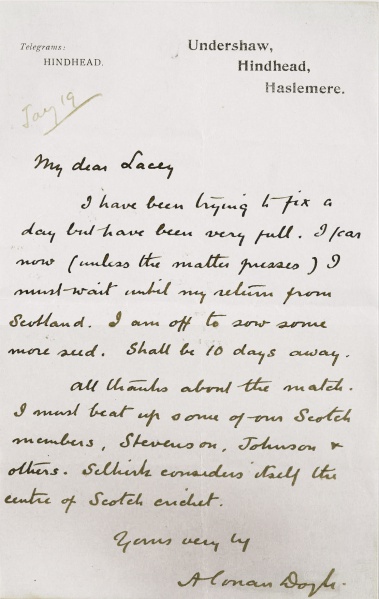 Telegrams:
HINDHEAD.
Undershaw,
Hindhead,
Haslemere.
Jany 19
My dear Lacey
I have been trying to fix a
day but have been very full. I fear
now (unless the matter presses) I
must wait until my return from
Scotland. I am off to sow some
more seed. Shall be 10 days away.
All thanks about the match.
I must beat up some of our Scotch
members, Stevenson, Johnson &
others. Selkirk considers itself the
centre of Scotch cricket.
Yours very ty
A Conan Doyle.